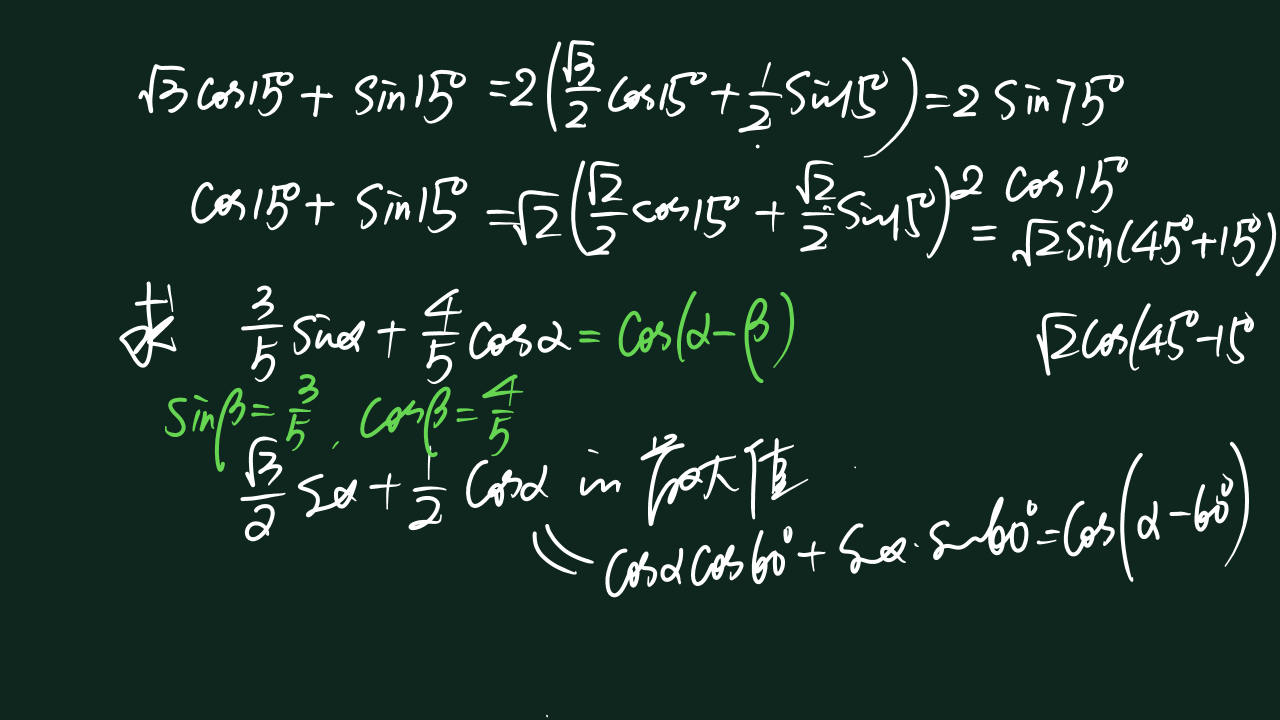 √3 cos15° + sin15° = 2(√3/2 cos15° + 1/2 sin15°) = 2 sin75°
2 cos15°
cos15° + sin15° = √2(√2/2 cos15° + √2/2 sin15°) = √2 sin(45°+15°)
求 3/5 sinα + 4/5 cosα = cos(α-β)
√2cos(45°-15°
sinβ = 3/5 , cosβ = 4/5
√3/2 sα + 1/2 cosα in 最大值
\\ cosα cos60° + sα · sin60° = cos(α-60°)